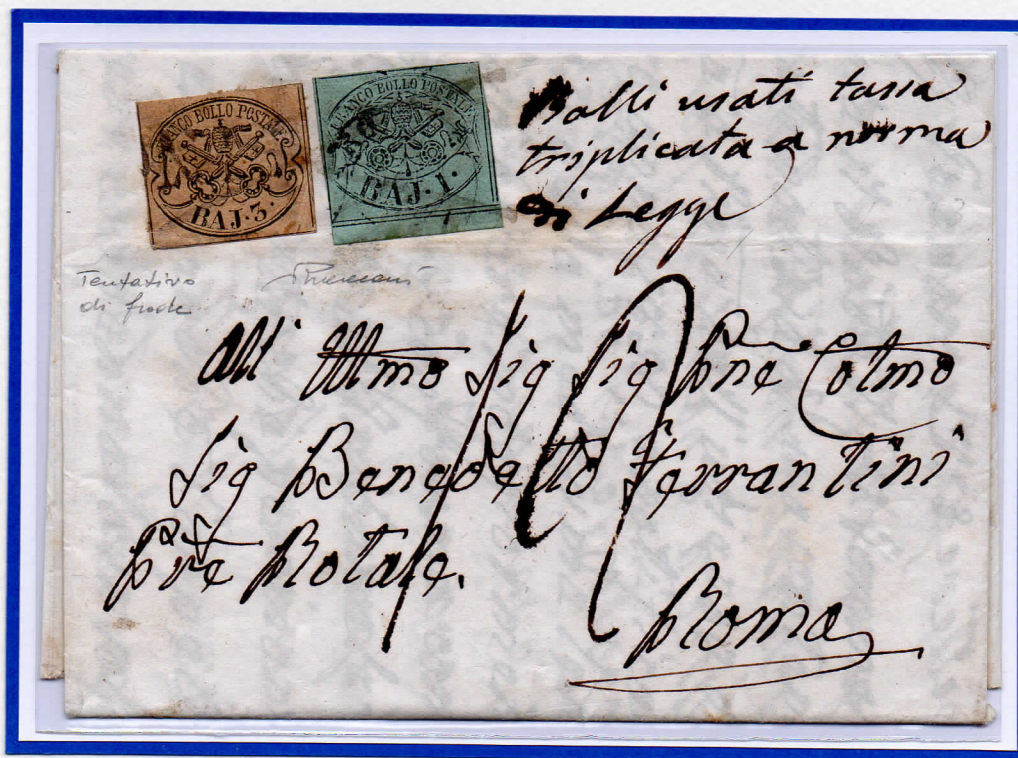 FRANCO BOLLO POSTALE
BAJ. 3.
FRANCO BOLLO POSTALE
BAJ. 1.
Bolli usati tassa
triplicata a norma
di Legge
Tentativo
di frode
All Illmo Sig Sig Pne Colmo
Sig Benedetto Ferrantini
Pre Rotale.
Roma
12